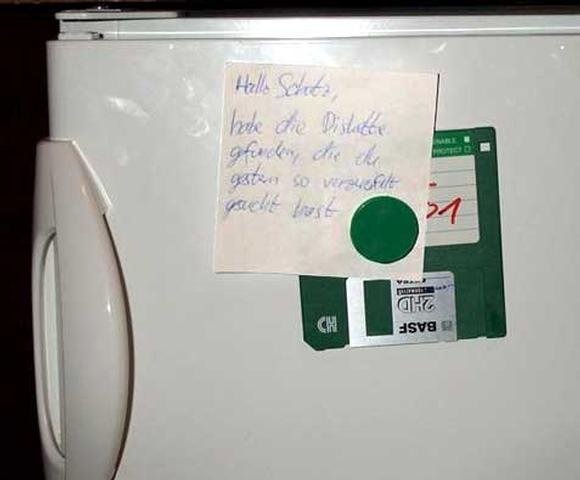 Hallo Schatz,
habe die Diskette
gefunden, die du
gestern so verzweifelt
gesucht hast
ENABLE
PROTECT
01
HD
2HD
BASF